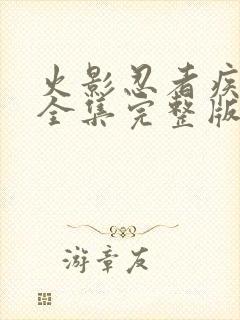 火影忍者疾
全集完整版
游章友